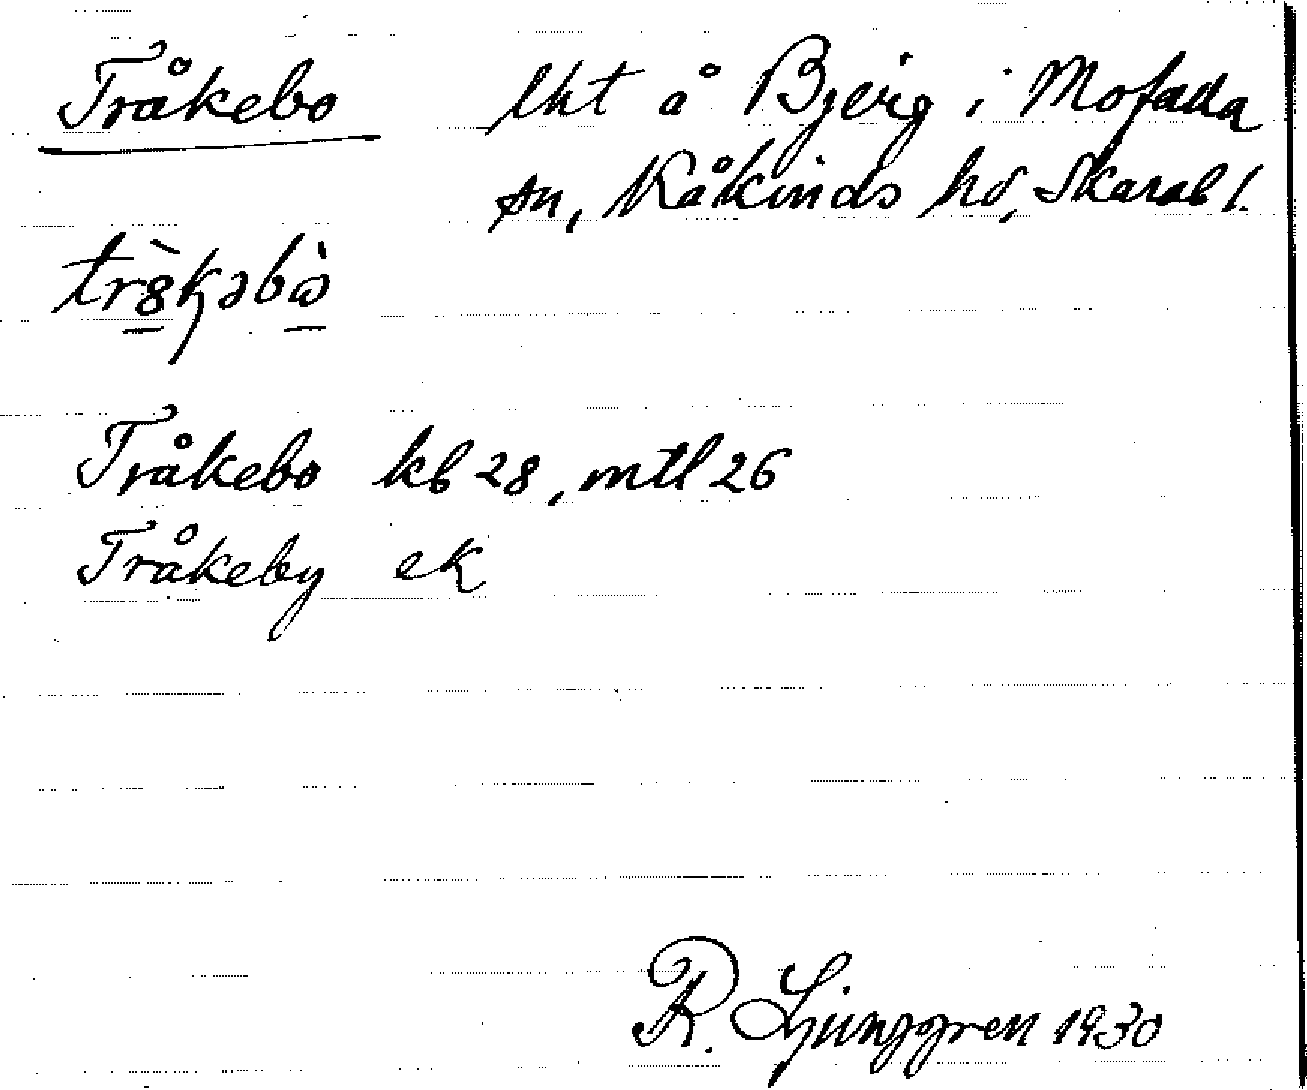 Tråkebo lht å Bjerg i Mofalla
sn, Kåkinds hd, Skarab l.
trs̀kəbὼ
Tråkebo kb 28, mtl 26
Tråkeby ek
R. Ljunggren 1930